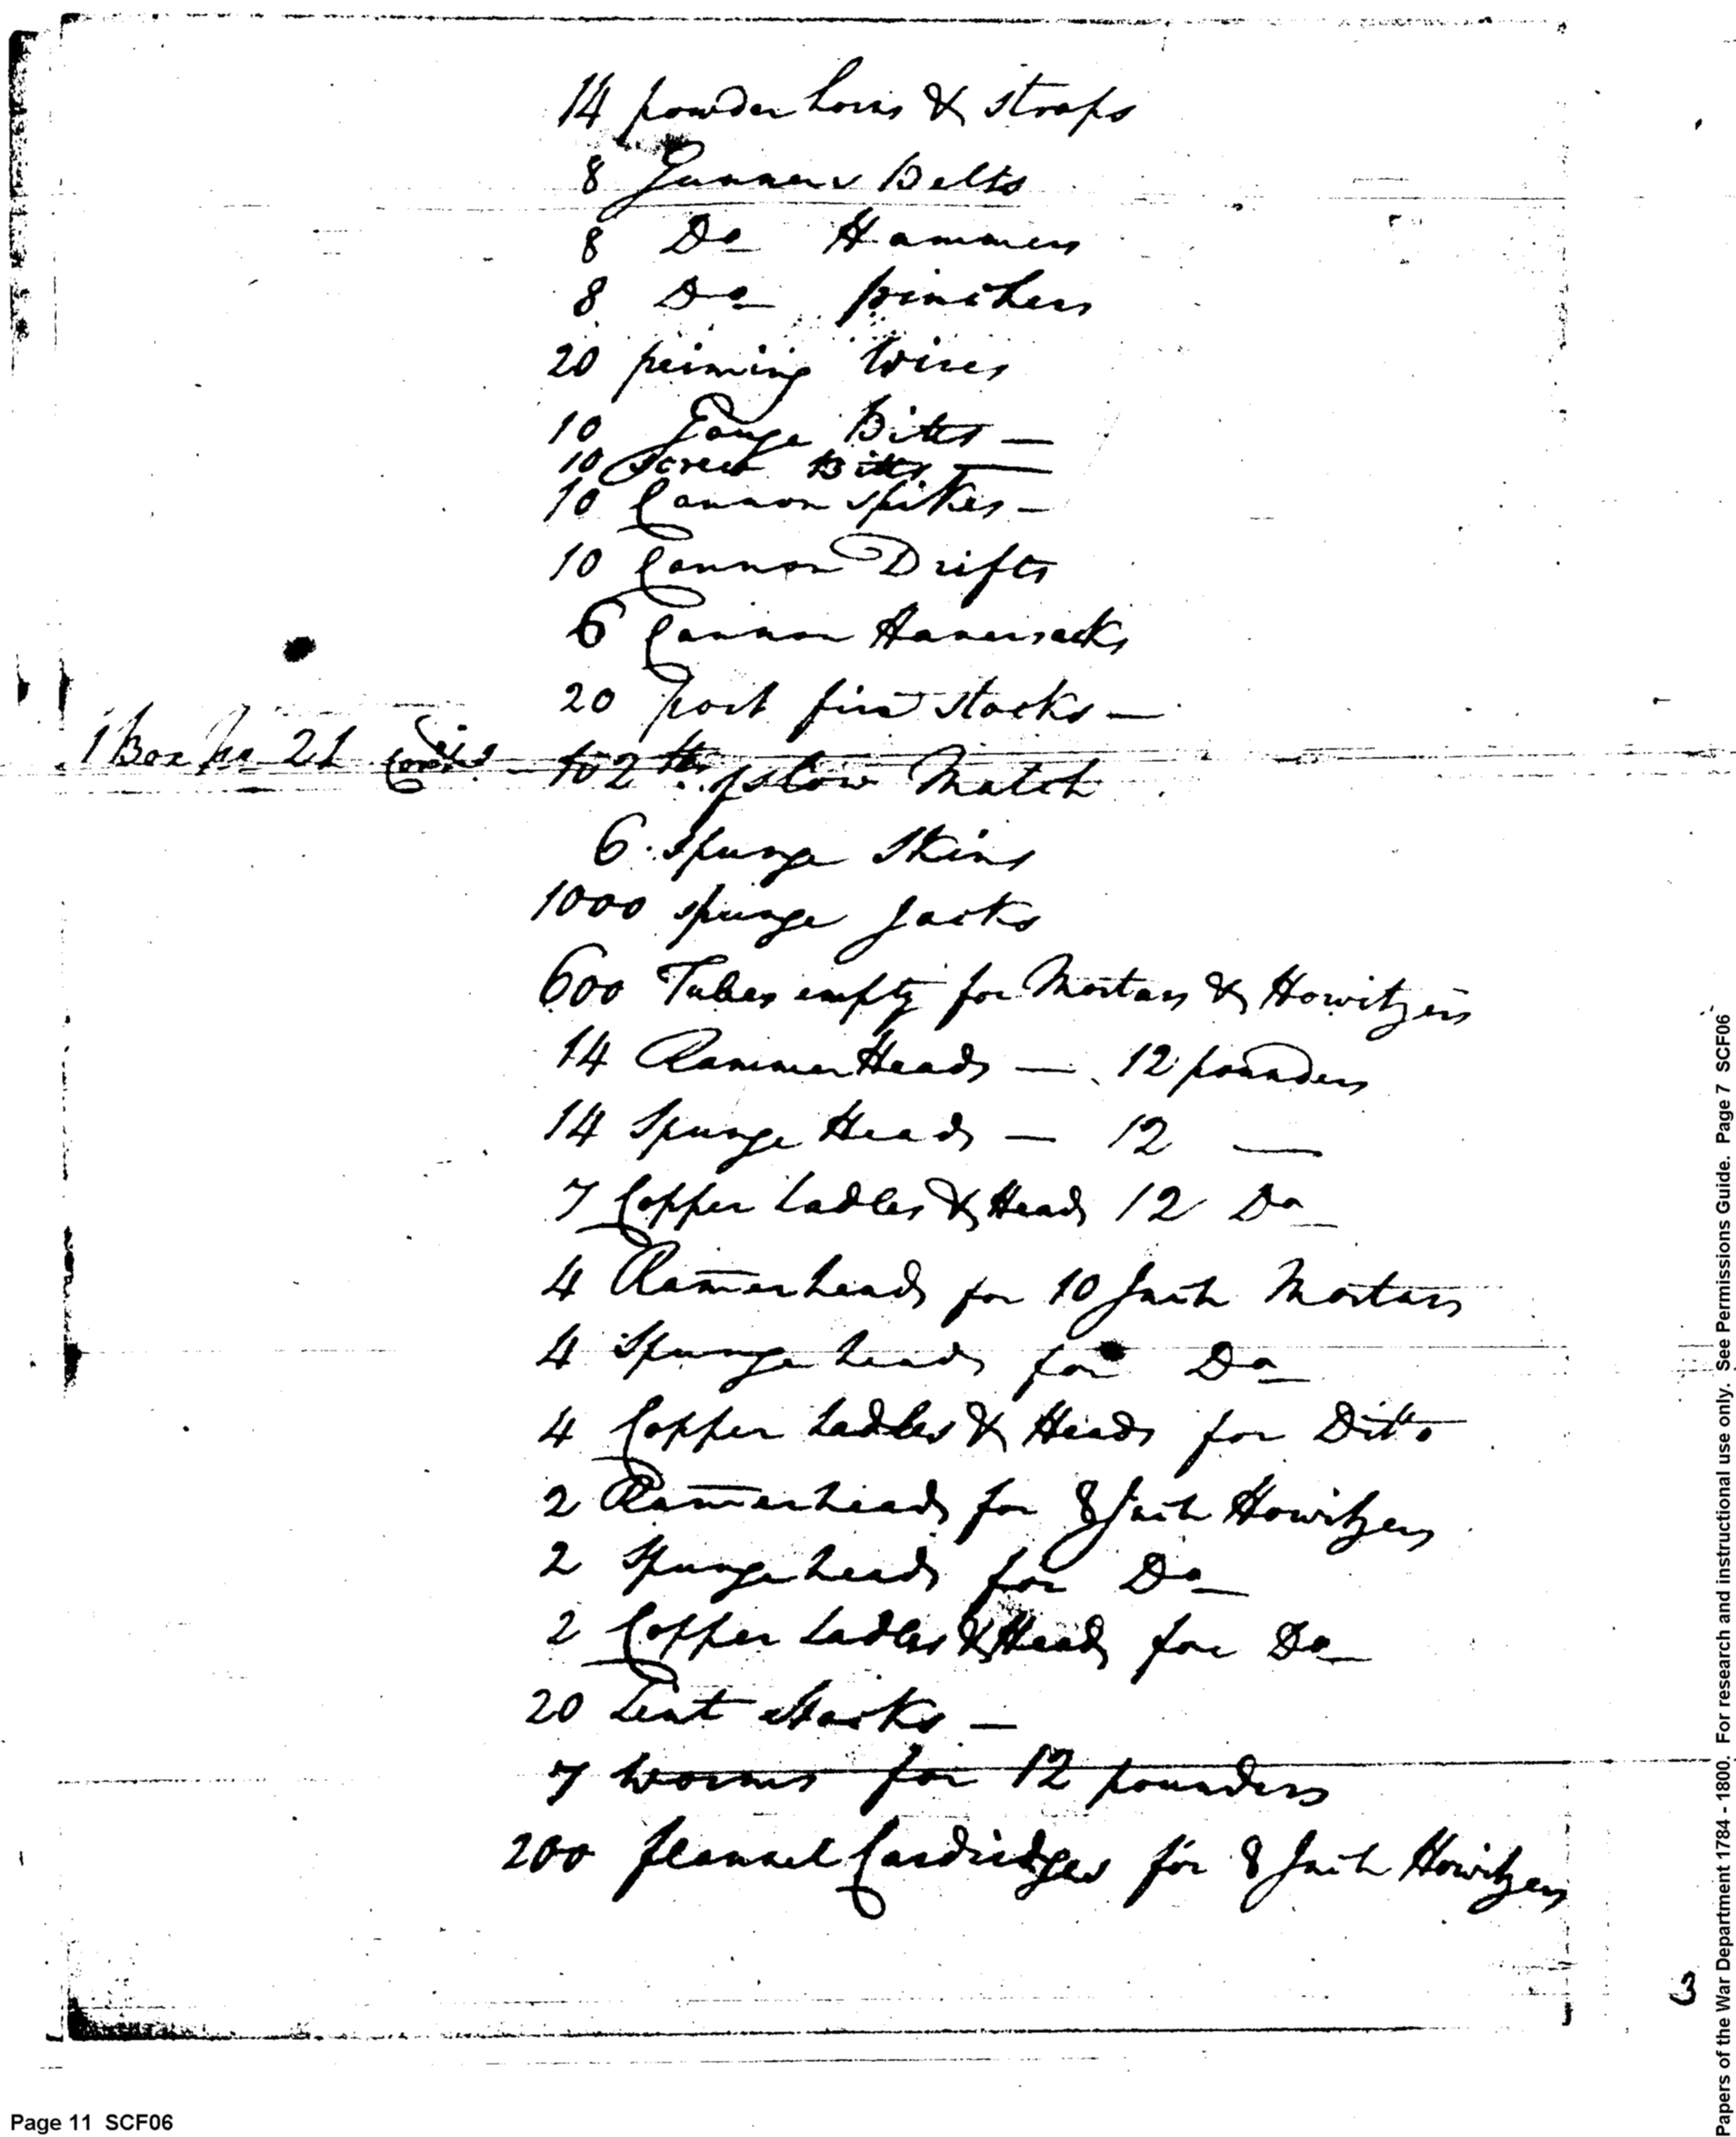 14 powder horns & straps
8 Gunners Belts
8 Do Hammers
8 Do pinchers
20 priming Wires
10 Gouge Bitts —
10 Screw Bitts —
10 Cannon spikes —
10 Cannon Drifts
6 Cannon Haversacks
20 port fire stocks —
1 Box No 21 Cont.g — 102 lbs. slow Match
6 spunge skins
1000 spunge Tacks
600 Tubes empty for Mortars & Howitzers
14 Rammer Heads — 12 pounders
14 Spunge Heads — 12 —
7 Copper Ladles & Heads 12 Do
4 Ramerheads for 10 Inch Mortars
4 Spunge heads for Do
4 Copper Ladles & Heads for Ditto
2 Ramerheads for 8 Inch Howitzers
2 Spunge heads for Do
2 Copper Ladles & Heads for Do
20 Lint stocks —
7 worms for 12 pounders
200 flannel Cardridges for 8 Inch Howitzers
3
Page 11 SCF06
Papers of the War Department 1784 - 1800. For research and instructional use only. See Permissions Guide. Page 7 SCF06